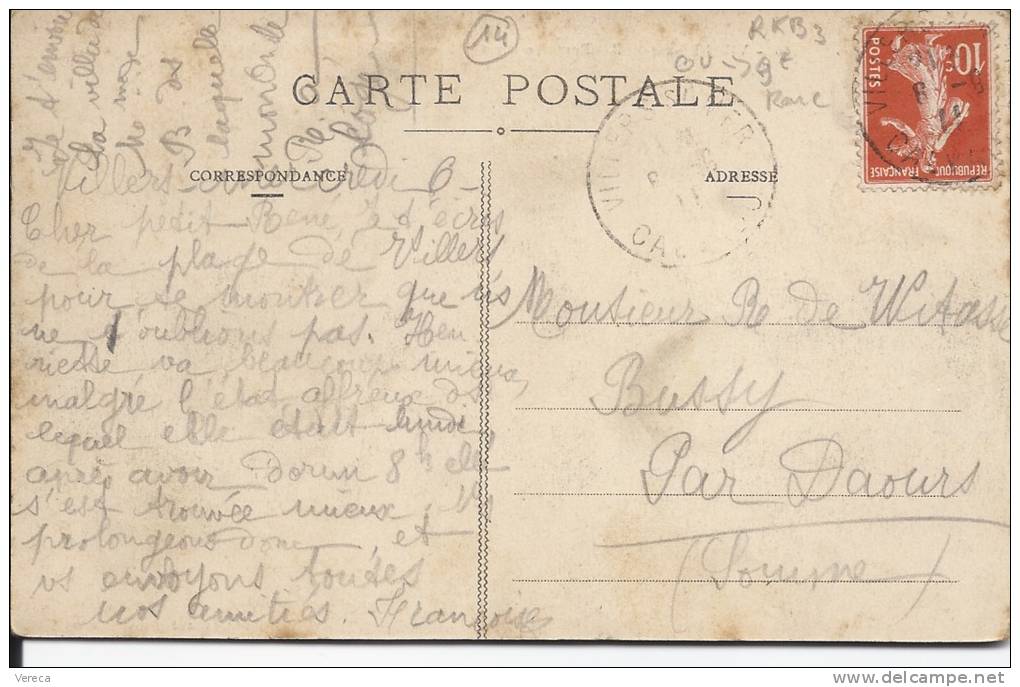 14
RKB3
Rare
CARTE POSTALE
CORRESPONDANCE
ADRESSE
10
POSTES
REPUBLIQUE FRANÇAISE
VILLERS
CAL
Je t'envoie
la villa de
B ds
laquelle
Villers mercredi 6
Cher petit René, Je t'écris
de la plage de Villers
pour te montrer que ns
ne t'oublions pas. Hen
riette va beaucoup mieux,
malgré l'état affreux ds
lequel elle était lundi
après avoir dormi 8h elle
s'est trouvée mieux. Ns
prolongeons donc, et
vs envoyons toutes
nos amitiés. Françoise
Monsieur Re de Witasse
Bussy
Par Daours
(Somme)
Vereca
www.delcampe.net